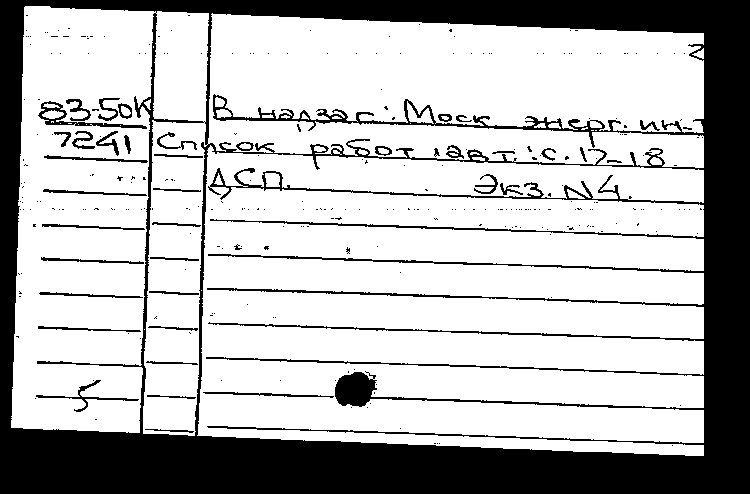 2
83-50К В надзаг.: Моск энерг. ин-т
7241 Список работ авт.: с. 17-18
ДСП. Экз. N4.
5